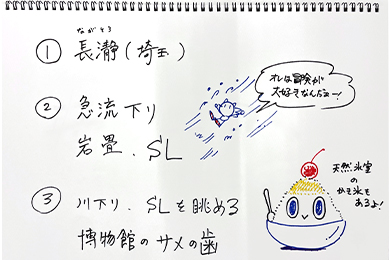 ながとろ
① 長瀞(埼玉)
② 急流下り
岩畳、SL
オレは冒険が
大好きなんだぁー!
③ 川下り、SLを眺める
博物館のサメの歯
天然氷室
の
かき氷も
あるよ!